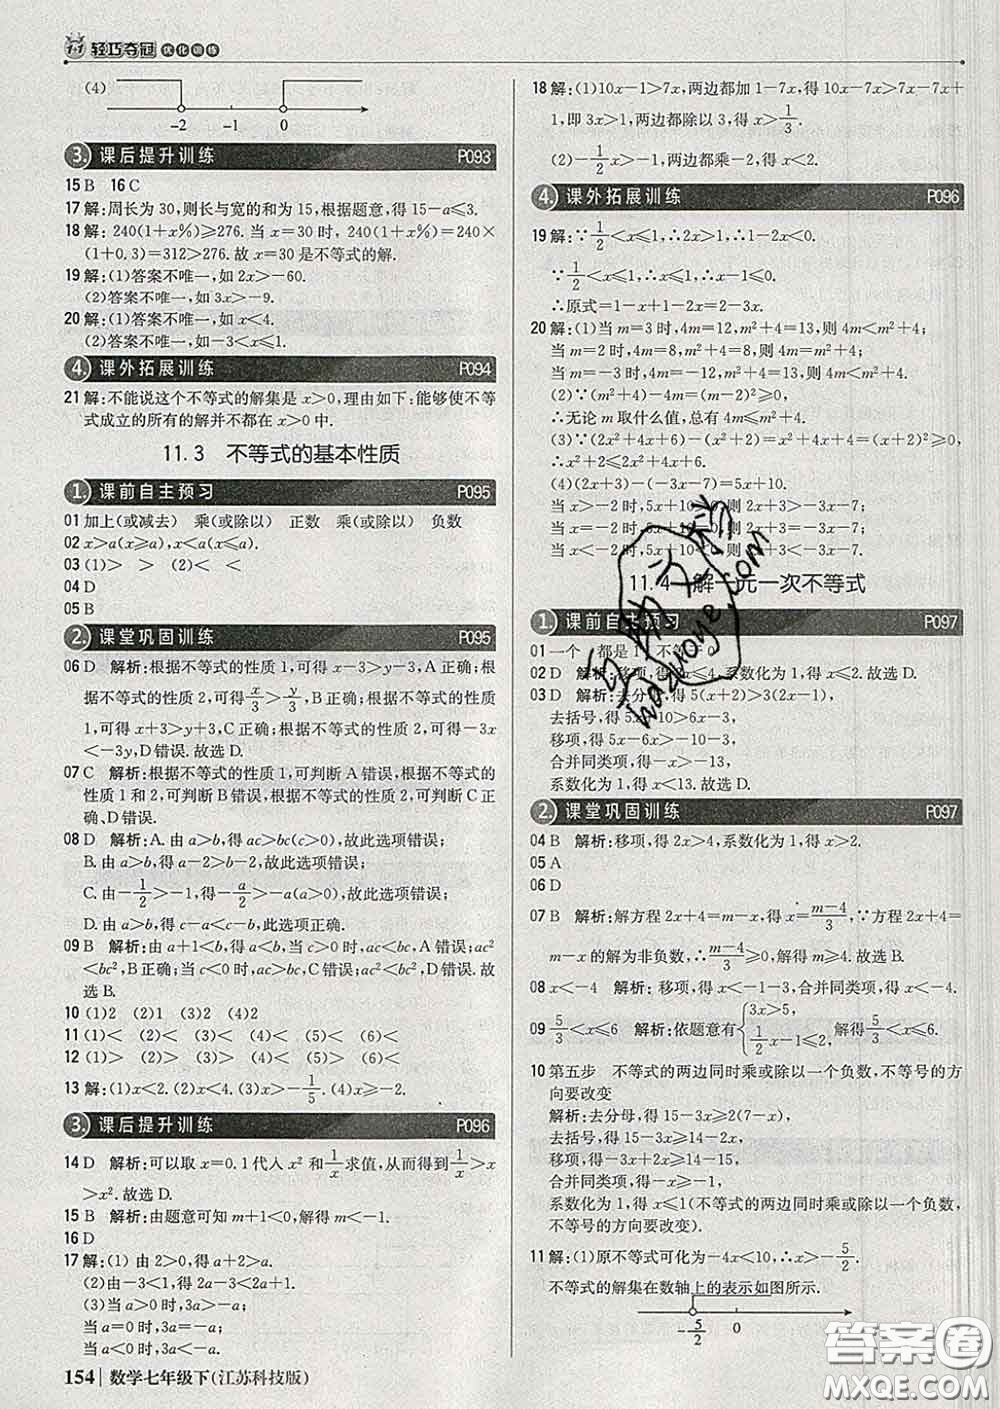 1+1 轻巧夺冠 优化训练
(4)
-2 -1 0
3. 课后提升训练 P093
15 B 16 C
17 解:周长为 30,则长与宽的和为 15,根据题意,得 15-a≤3.
18 解: 240(1+x%)≥276. 当 x=30 时, 240(1+x%)=240×
(1+0.3)=312>276. 故 x=30 是不等式的解.
19 解:(1)答案不唯一,如 2x>-60.
(2)答案不唯一,如 3x>-9.
20 解:(1)答案不唯一,如 x<4.
(2)答案不唯一,如-3<x≤1.
4. 课外拓展训练 P094
21 解:不能说这个不等式的解集是 x>0,理由如下:能够使不等
式成立的所有的解并不都在 x>0 中.
11.3 不等式的基本性质
1. 课前自主预习 P095
01 加上(或减去) 乘(或除以) 正数 乘(或除以) 负数
02 x>a(x≥a),x<a(x≤a).
03 (1)> > (2)< <
04 D
05 B
2. 课堂巩固训练 P095
06 D 解析:根据不等式的性质 1,可得 x-3>y-3,A 正确;根
据不等式的性质 2,可得 x/3>y/3,B 正确;根据不等式的性质
1,可得 x+3>y+3,C 正确;根据不等式的性质 2,可得-3x
<-3y,D 错误. 故选 D.
07 C 解析:根据不等式的性质 1,可判断 A 错误,根据不等式的
性质 1 和 2,可判断 B 错误,根据不等式的性质 2,可判断 C 正
确、D 错误.
08 D 解析:A. 由 a>b,得 ac>bc(c>0),故此选项错误;
B. 由 a>b,得 a-2>b-2,故此选项错误;
C. 由-1/2>-1,得-a/2>-a(a>0),故此选项错误;
D. 由 a>b,得 c-a<c-b,此选项正确.
09 B 解析:由 a+1<b,得 a<b,当 c>0 时,ac<bc,A 错误;ac²
<bc²,B 正确;当 c<0 时,ac>bc,C 错误;ac²<bc²,D 错误. 故
选 B.
10 (1)2 (2)1 (3)2 (4)2
11 (1)< (2)< (3)> (4)> (5)> (6)<
12 (1)> (2)> (3)< (4)> (5)< (6)<
13 解:(1)x<2. (2)x<4. (3)x>-1/5. (4)x≥-2.
3. 课后提升训练 P096
14 D 解析:可以取 x=0.1 代入 x² 和 1/x 求值,从而得到 1/x>x
>x². 故选 D.
15 B 解析:由题意可知 m+1<0,解得 m<-1.
16 D
17 解:(1) 由 2>0,得 a+2>a;
(2)由-3<1,得 2a-3<2a+1.
(3)当 a>0 时,3a>-a;
当 a=0 时,3a=-a;
当 a<0 时,3a<-a.
154 数学七年级下(江苏科技版)
18 解:(1)10x-1>7x,两边都加 1-7x,得 10x-7x>7x-7x+
1,即 3x>1,两边都除以 3,得 x>1/3.
(2)-1/2x>1,两边都乘-2,得 x<-2.
4. 课外拓展训练 P096
19 解:∵1/2<x≤1,∴2x>1,∴1-2x<0.
∵1/2<x≤1,∴x-1≤0.
∴原式=1-x+1-2x=2-3x.
20 解:(1)当 m=3 时,4m=12,m²+4=13,则 4m<m²+4;
当 m=2 时,4m=8,m²+4=8,则 4m=m²+4;
当 m=-3 时,4m=-12,m²+4=13,则 4m<m²+4.
(2)∵(m²+4)-4m=(m-2)²≥0,
∴无论 m 取什么值,总有 4m≤m²+4.
(3)∵(2x²+4x+6)-(x²+2)=x²+4x+4=(x+2)²≥0,
∴x²+2≤2x²+4x+6.
(4)(2x+3)-(-3x-7)=5x+10.
当 x>-2 时,5x+10>0,则 2x+3>-3x-7;
当 x=-2 时,5x+10=0,则 2x+3=-3x-7;
当 x<-2 时,5x+10<0,则 2x+3<-3x-7.
11.4 解一元一次不等式
1. 课前自主预习 P097
01 一个 都是 1 不等于 0
02 D 解析:移项,得 2x≤4,系数化为 1,得 x≤2. 故选 D.
03 D 解析:去分母,得 5(x+2)>3(2x-1),
去括号,得 5x+10>6x-3,
移项,得 5x-6x>-10-3,
合并同类项,得-x>-13,
系数化为 1,得 x<13. 故选 D.
2. 课堂巩固训练 P097
04 B 解析:移项,得 2x>4,系数化为 1,得 x>2.
05 A
06 D
07 B 解析:解方程 2x+4=m-x,得 x=(m-4)/3,∵方程 2x+4=
m-x 的解为非负数,∴(m-4)/3≥0,解得 m≥4. 故选 B.
08 x<-4 解析: 移项,得 x<-1-3,合并同类项,得 x<-4.
09 5/3<x≤6 解析:依题意有{3x>5, 1/2x-1≤2, 解得 5/3<x≤6.
10 第五步 不等式的两边同时乘或除以一个负数,不等号的方
向要改变
解析:去分母,得 15-3x≥2(7-x),
去括号,得 15-3x≥14-2x,
移项,得-3x+2x≥14-15,
合并同类项,得-x≥-1,
系数化为 1,得 x≤1(不等式的两边同时乘或除以一个负数,
不等号的方向要改变).
11 解:(1)原不等式可化为-4x<10,∴x>-5/2.
不等式的解集在数轴上的表示如图所示.
-5/2 0
答案圈
MXQE.COM